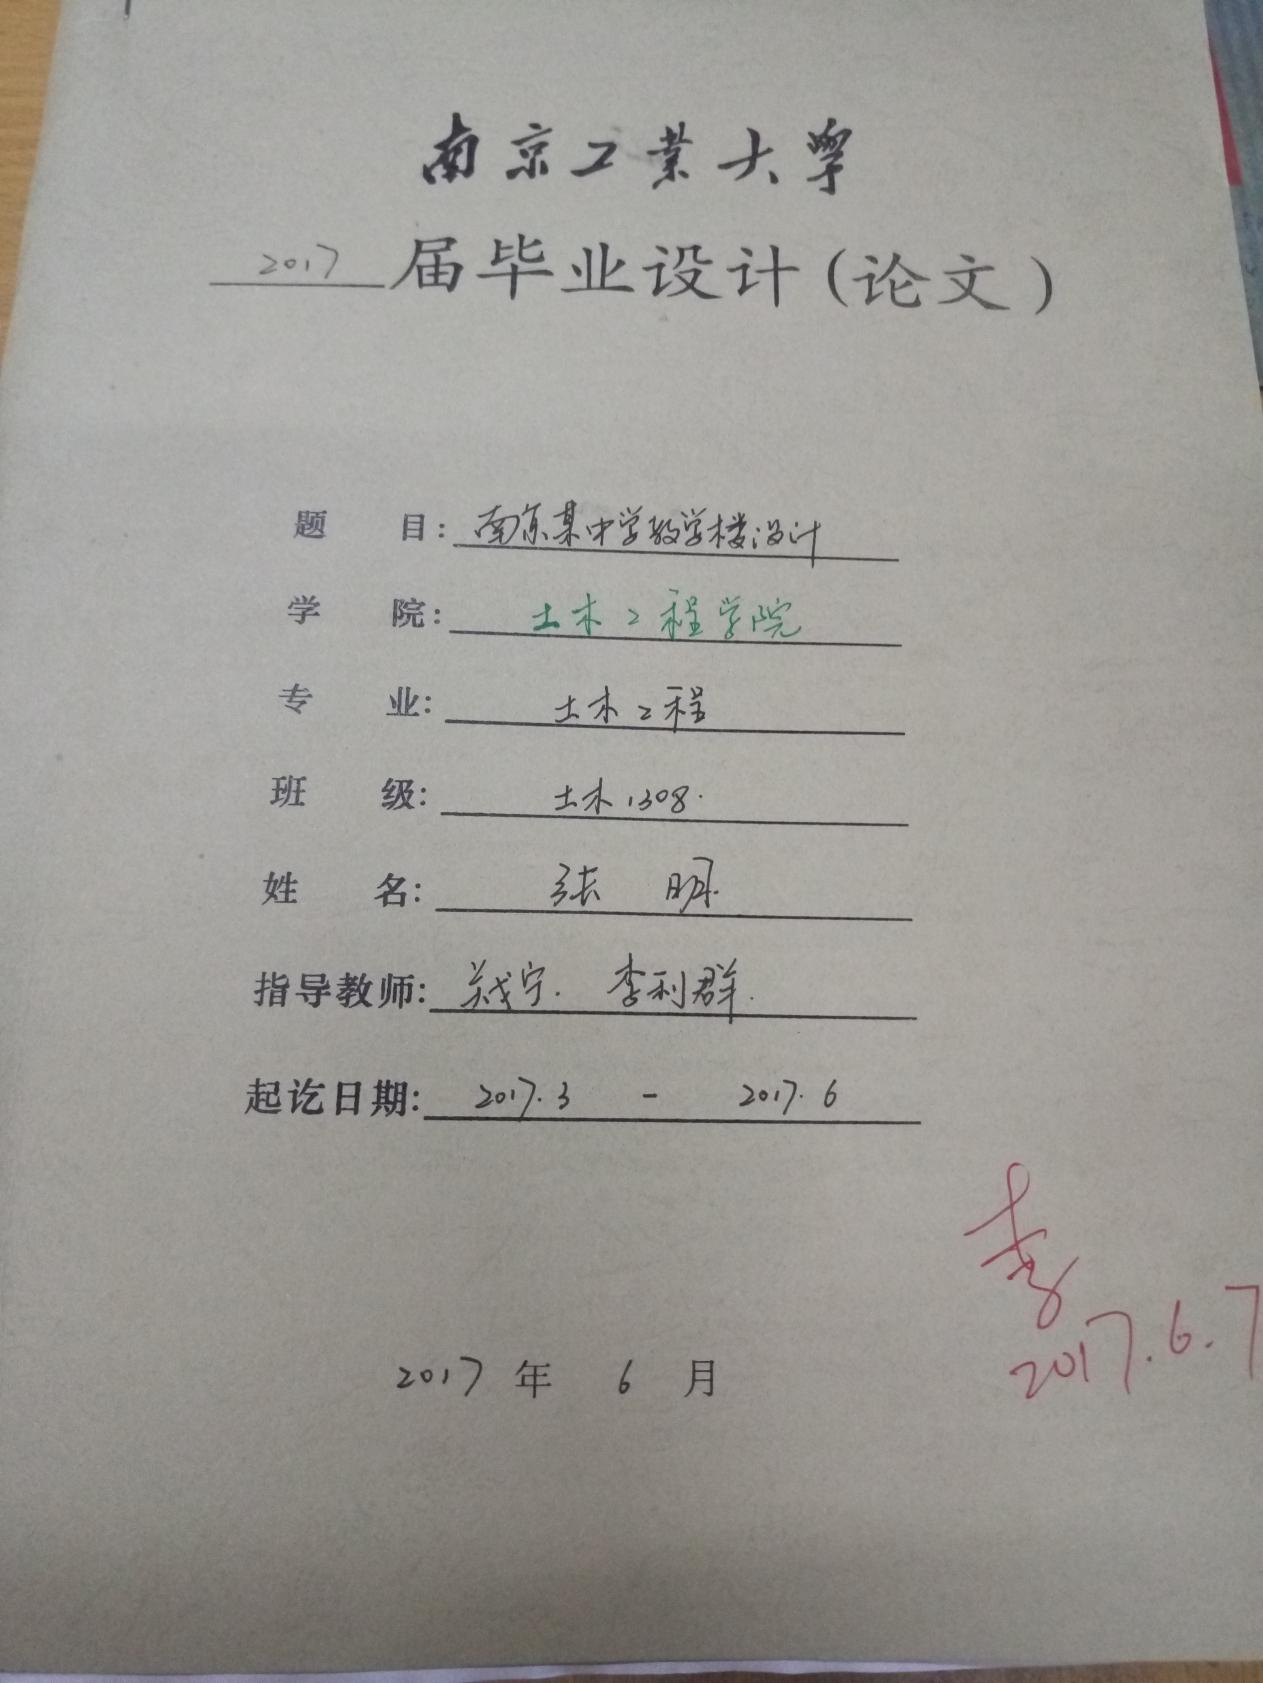 南京工业大学
2017届毕业设计(论文)
题目:南京某中学教学楼设计
学院:土木工程学院
专业:土木工程
班级:土木1308.
姓名:张 明.
指导教师: 宁. 李利群.
起讫日期:2017.3 - 2017.6
李
2017.6.7
2017年6月